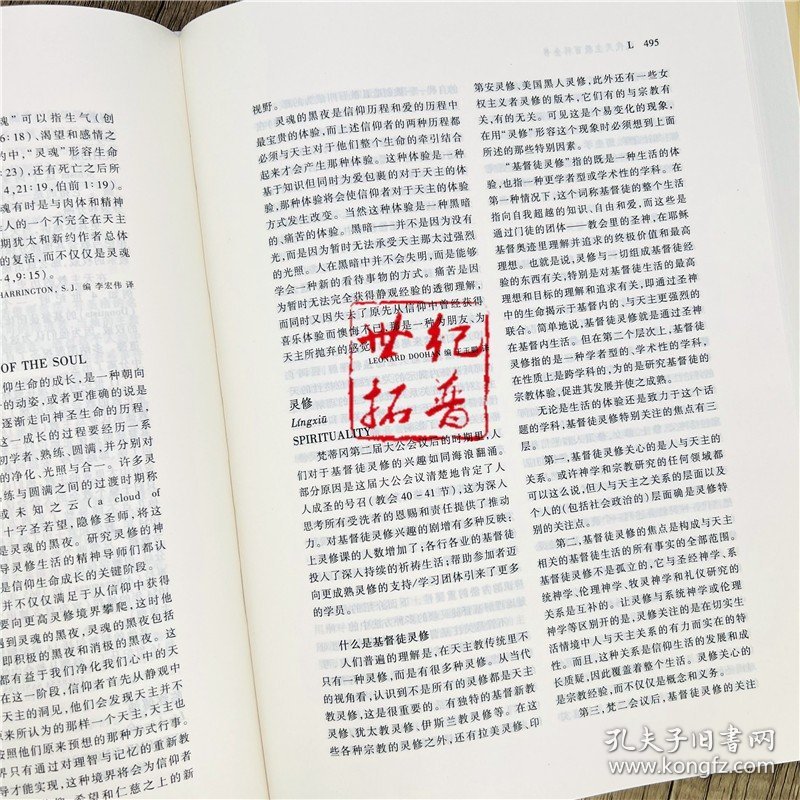 魂”可以指生气（创
6:18）、渴望和感情之
的中，“灵魂”形容生命
:23），还有死亡之后所
4,21:19，伯前1:19）。
魂有时是与肉体和精神
人的一个不完全在天主
期犹太和新约作者总体
的复活，而不仅仅是灵魂
-4,9:15）。
HARRINGTON, S.J. 编 李宏伟 译
OF THE SOUL
仰生命的成长，是一种朝向
的动姿，或者更准确的说是
逐渐走向神圣生命的历程，
这一成长的过程要经历一系
初学者、熟练、圆满，并分别对
的净化、光照与合一。许多灵
练与圆满之间的过渡时期称
或未知之云（a cloud of
十字圣若望，隐修圣师，将这
是灵魂的黑夜。研究灵修的神
导灵修生活的精神导师们都认
是信仰生命成长的关键阶段。
并不仅仅满足于从信仰中获得
要向更高灵修境界攀爬，这时他
遇到灵魂的黑夜，灵魂的黑夜包括
即积极的黑夜和消极的黑夜。这
都有益于我们净化我们心中的天
在这一阶段，信仰者首先从静观中
天主的洞见，他们会发现天主并不
来所认为的那样一个天主，天主也
按照他们原来预想的那种方式行事。
界只有通过对理智与记忆的重新教
导才能实现，这种境界将会为信仰者
希望和仁慈之上的新
L 495
视野。
灵魂的黑夜是信仰历程和爱的历程中
最宝贵的体验，而上述信仰者的两种历程都
必须与天主对于他们整个生命的牵引结合
起来才会产生那种体验。这种体验是一种
基于知识但同时为爱包裹的对于天主的体
验，那种体验将会使信仰者对于天主的体验
方式发生改变。当然这种体验是一种黑暗
的、痛苦的体验。黑暗——并不是因为没有
光，而是因为暂时无法承受天主那太过强烈
的光照。人在黑暗中并不会失明，而是能够
学会一种新的看待事物的方式。痛苦是因
为暂时无法完全获得静观经验的透彻理解，
而同时又因失去了原先从信仰中曾经获得
喜乐体验而懊悔不已，那是一种为朋友、为
天主所抛弃的感觉。
LEONARD DOOHAN 编
灵修
Língxiū
SPIRITUALITY
梵蒂冈第二届大公会议后的时期里，人
们对于基督徒灵修的兴趣如同海浪翻涌。
部分原因是这届大公会议清楚地肯定了人
人成圣的号召（教会40－41节），这为深入
思考所有受洗者的恩赐和责任提供了推动
力。对基督徒灵修兴趣的剧增有多种反映：
上灵修课的人数增加了；各行各业的基督徒
投入了深入持续的祈祷生活；帮助参加者迈
向更成熟灵修的支持/学习团体引来了更多
的学员。
什么是基督徒灵修
人们普遍的理解是，在天主教传统里不
只有一种灵修，而是有很多种灵修。从当代
的视角看，认识到不是所有的灵修都是天主
教灵修，这是很重要的。有独特的基督新教
灵修、犹太教灵修、伊斯兰教灵修等。在这
些各种宗教的灵修之外，还有拉美灵修、印
第安灵修、美国黑人灵修，此外还有一些女
权主义者灵修的版本，它们有的与宗教有
关，有的无关。可见这是个易变化的现象，
在用“灵修”形容这个现象时必须想到上面
所述的那些特别因素。
“基督徒灵修”指的既是一种生活的体
验，也指一种更学者型或学术性的学科。在
第一种情况下，这个词称基督徒的整个生活
指向自我超越的知识、自由和爱，而这些是
通过门徒的团体——教会里的圣神，在耶稣
基督奥迹里理解并追求的终极价值和最高
理想。也就是说，灵修与一切组成基督徒经
验的东西有关，特别是对基督徒生活的最高
理想和目标的理解和追求有关，即通过圣神
中的生命揭示于基督内的、与天主更强烈的
联合。简单地说，基督徒灵修就是通过圣神
在基督内生活。但在第二个层次上，基督徒
灵修指的是一种学者型的、学术性的学科，
在性质上是跨学科的，为的是研究基督徒的
宗教体验，促进其发展并使之成熟。
无论是生活的体验还是致力于这个话
题的学科，基督徒灵修特别关注的焦点有三
层。
第一，基督徒灵修关心的是人与天主的
关系。或许神学和宗教研究的任何领域都
可以这么说，但人与天主之关系的层面以及
个人的（包括社会政治的）层面确是灵修特
别的关注点。
第二，基督徒灵修的焦点是构成与天主
相关的基督徒生活的所有事实的全部范围。
基督徒灵修不是孤立的，它与圣经神学、系
统神学、伦理神学、牧灵神学和礼仪研究的
关系是互补的。让灵修与系统神学或伦理
神学等区别开的是，灵修关注的是在切实生
活情境中人与天主关系的有力而实在的特
性。而且，这种关系是信仰生活的发展和成
长质疑，因此覆盖着整个生活。灵修关心的
是宗教经验，而不仅仅是概念和义务。
第三，梵二会议后，基督徒灵修的关注
世纪
拓普
孔夫子旧书网
kongfz.com